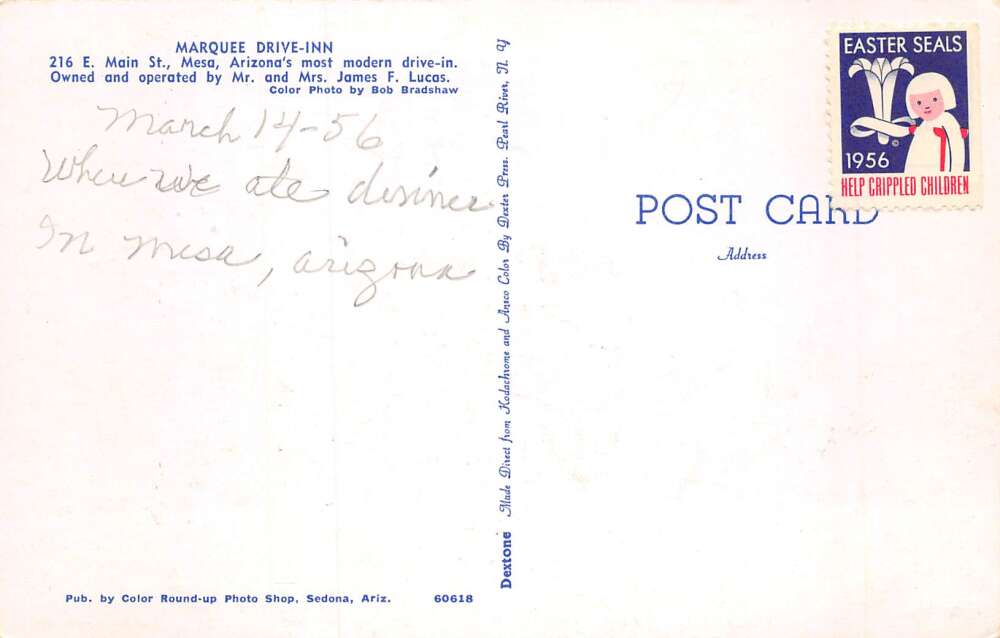 MARQUEE DRIVE-INN
216 E. Main St., Mesa, Arizona's most modern drive-in.
Owned and operated by Mr. and Mrs. James F. Lucas.
Color Photo by Bob Bradshaw
March 14-56
Where we ate dinner
In Mesa, Arizona
Pub. by Color Round-up Photo Shop, Sedona, Ariz. 60618
Dextone Made Direct from Kodachrome and Ansco Color By Dexter Press, Pearl River, N. Y
EASTER SEALS
©
1956
HELP CRIPPLED CHILDREN
POST CARD
Address